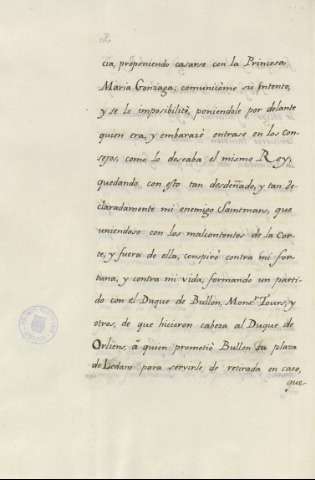 2
cia, proponiendo casarse con la Princesa
Maria Gonzaga; comunicòme su intento,
y se lo imposibilitè, poniendole por delante
quien era, y embarazè entrase en los con-
sejos, como lo deseaba el mismo Rey;
quedando con esto tan desdeñado, y tan de-
claradamente mi enemigo Saintmars, que
uniendose con los malcontentos de la Cor-
te, y fuera de ella, conspirò contra mi for-
tuna, y contra mi vida, formando un parti-
do con el Duque de Bullon, Monsr. Tours, y
otros, de que hicieron cabeza al Duque de
Orliens, à quien prometiò Bullon su plaza
de Sedan para servirle de retirada en caso,
que